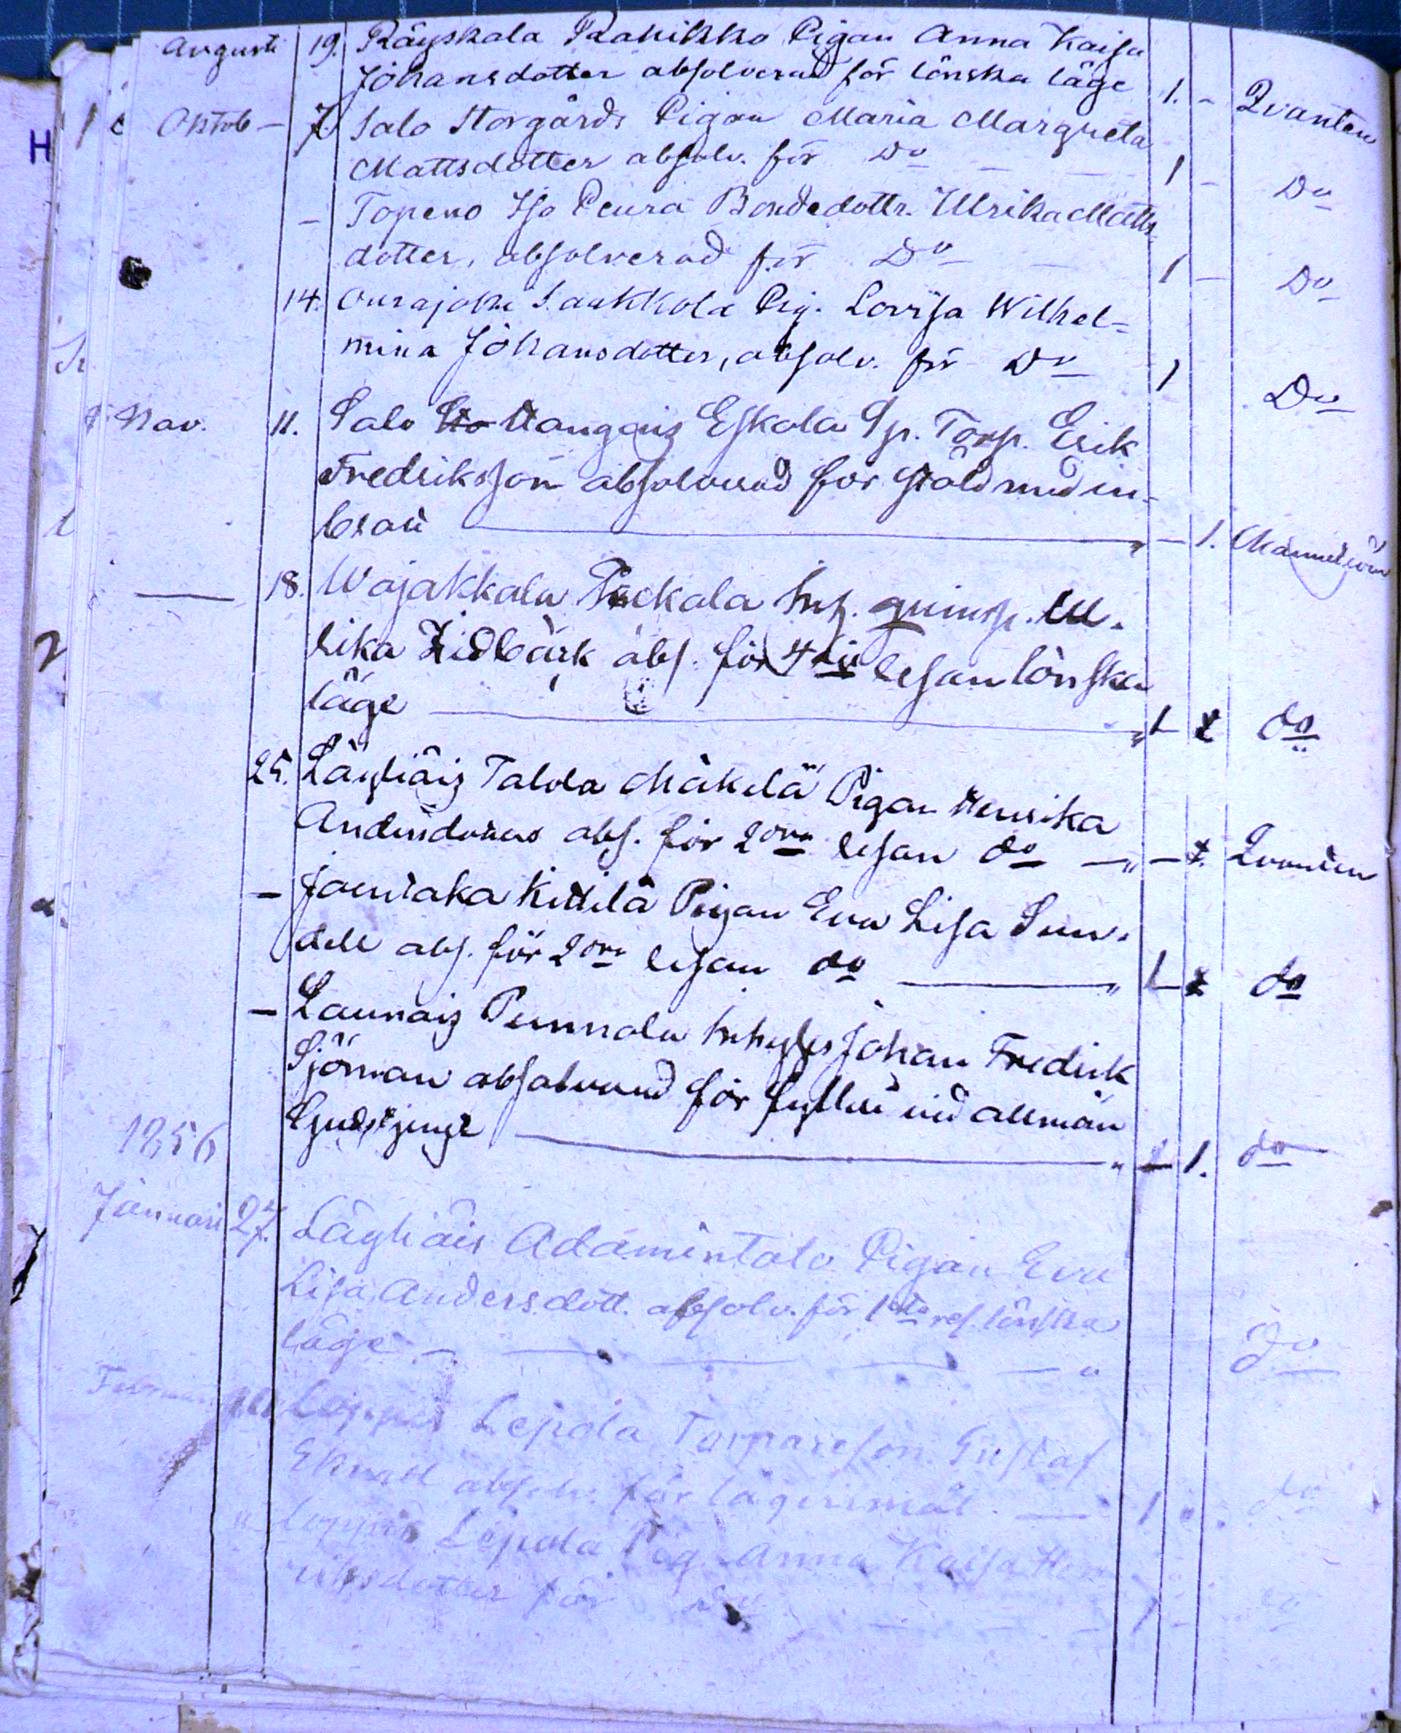 Augusti 19. Räyskala Rahikko Pigan Anna Kaisa
Johansdotter absolverad för lönska läge 1. - Qvanten
Oktob - 7. Salo Storgårds Pigan Maria Margreta
Mattsdotter absolv. för Do 1 - Do
- Topeno Iso Peura Bondedottr. Ulrika Matts
dotter, absolverad för Do 1 - Do
14. Ourajoki Saukkola Pig. Lovisa Wilhel=
mina Johansdotter, absolv. för Do 1 Do
Nov. 11. Salo Eskola Sp. Torp. Erik
Fredriksson absolverad för stöld med in-
brott " - 1.
18. Wojakkala Inh. qvinsp. Ul-
rika Lidbäck abs. för 4de resan lönska
läge " 1 do
25. Läyliäis Talola Mäkelä Pigan Henrika
Andersdotter abs. för 2dra resan do " - Qvanten
- Joentaka Kittilä Pigan Eva Lisa Sun-
dell abs. för 2dra resan do " 1 do
- Launois Punnola Inhyses Johan Fredrik
Sjöman absolverad för fylleri vid allmän
Gudstjenst " 1. do
1856
Januari 27. Läyliäis Adamintalo Pigan Eva
Lisa Andersdott. absolv. för 1sta res. lönska
läge - " do
Loppis Lepola Torpareson Gustaf
absolv. för lägersmål. 1 do
" Loppis Lepola Pig. Anna Kaisa Hen
riksdotter för Do 1 - do